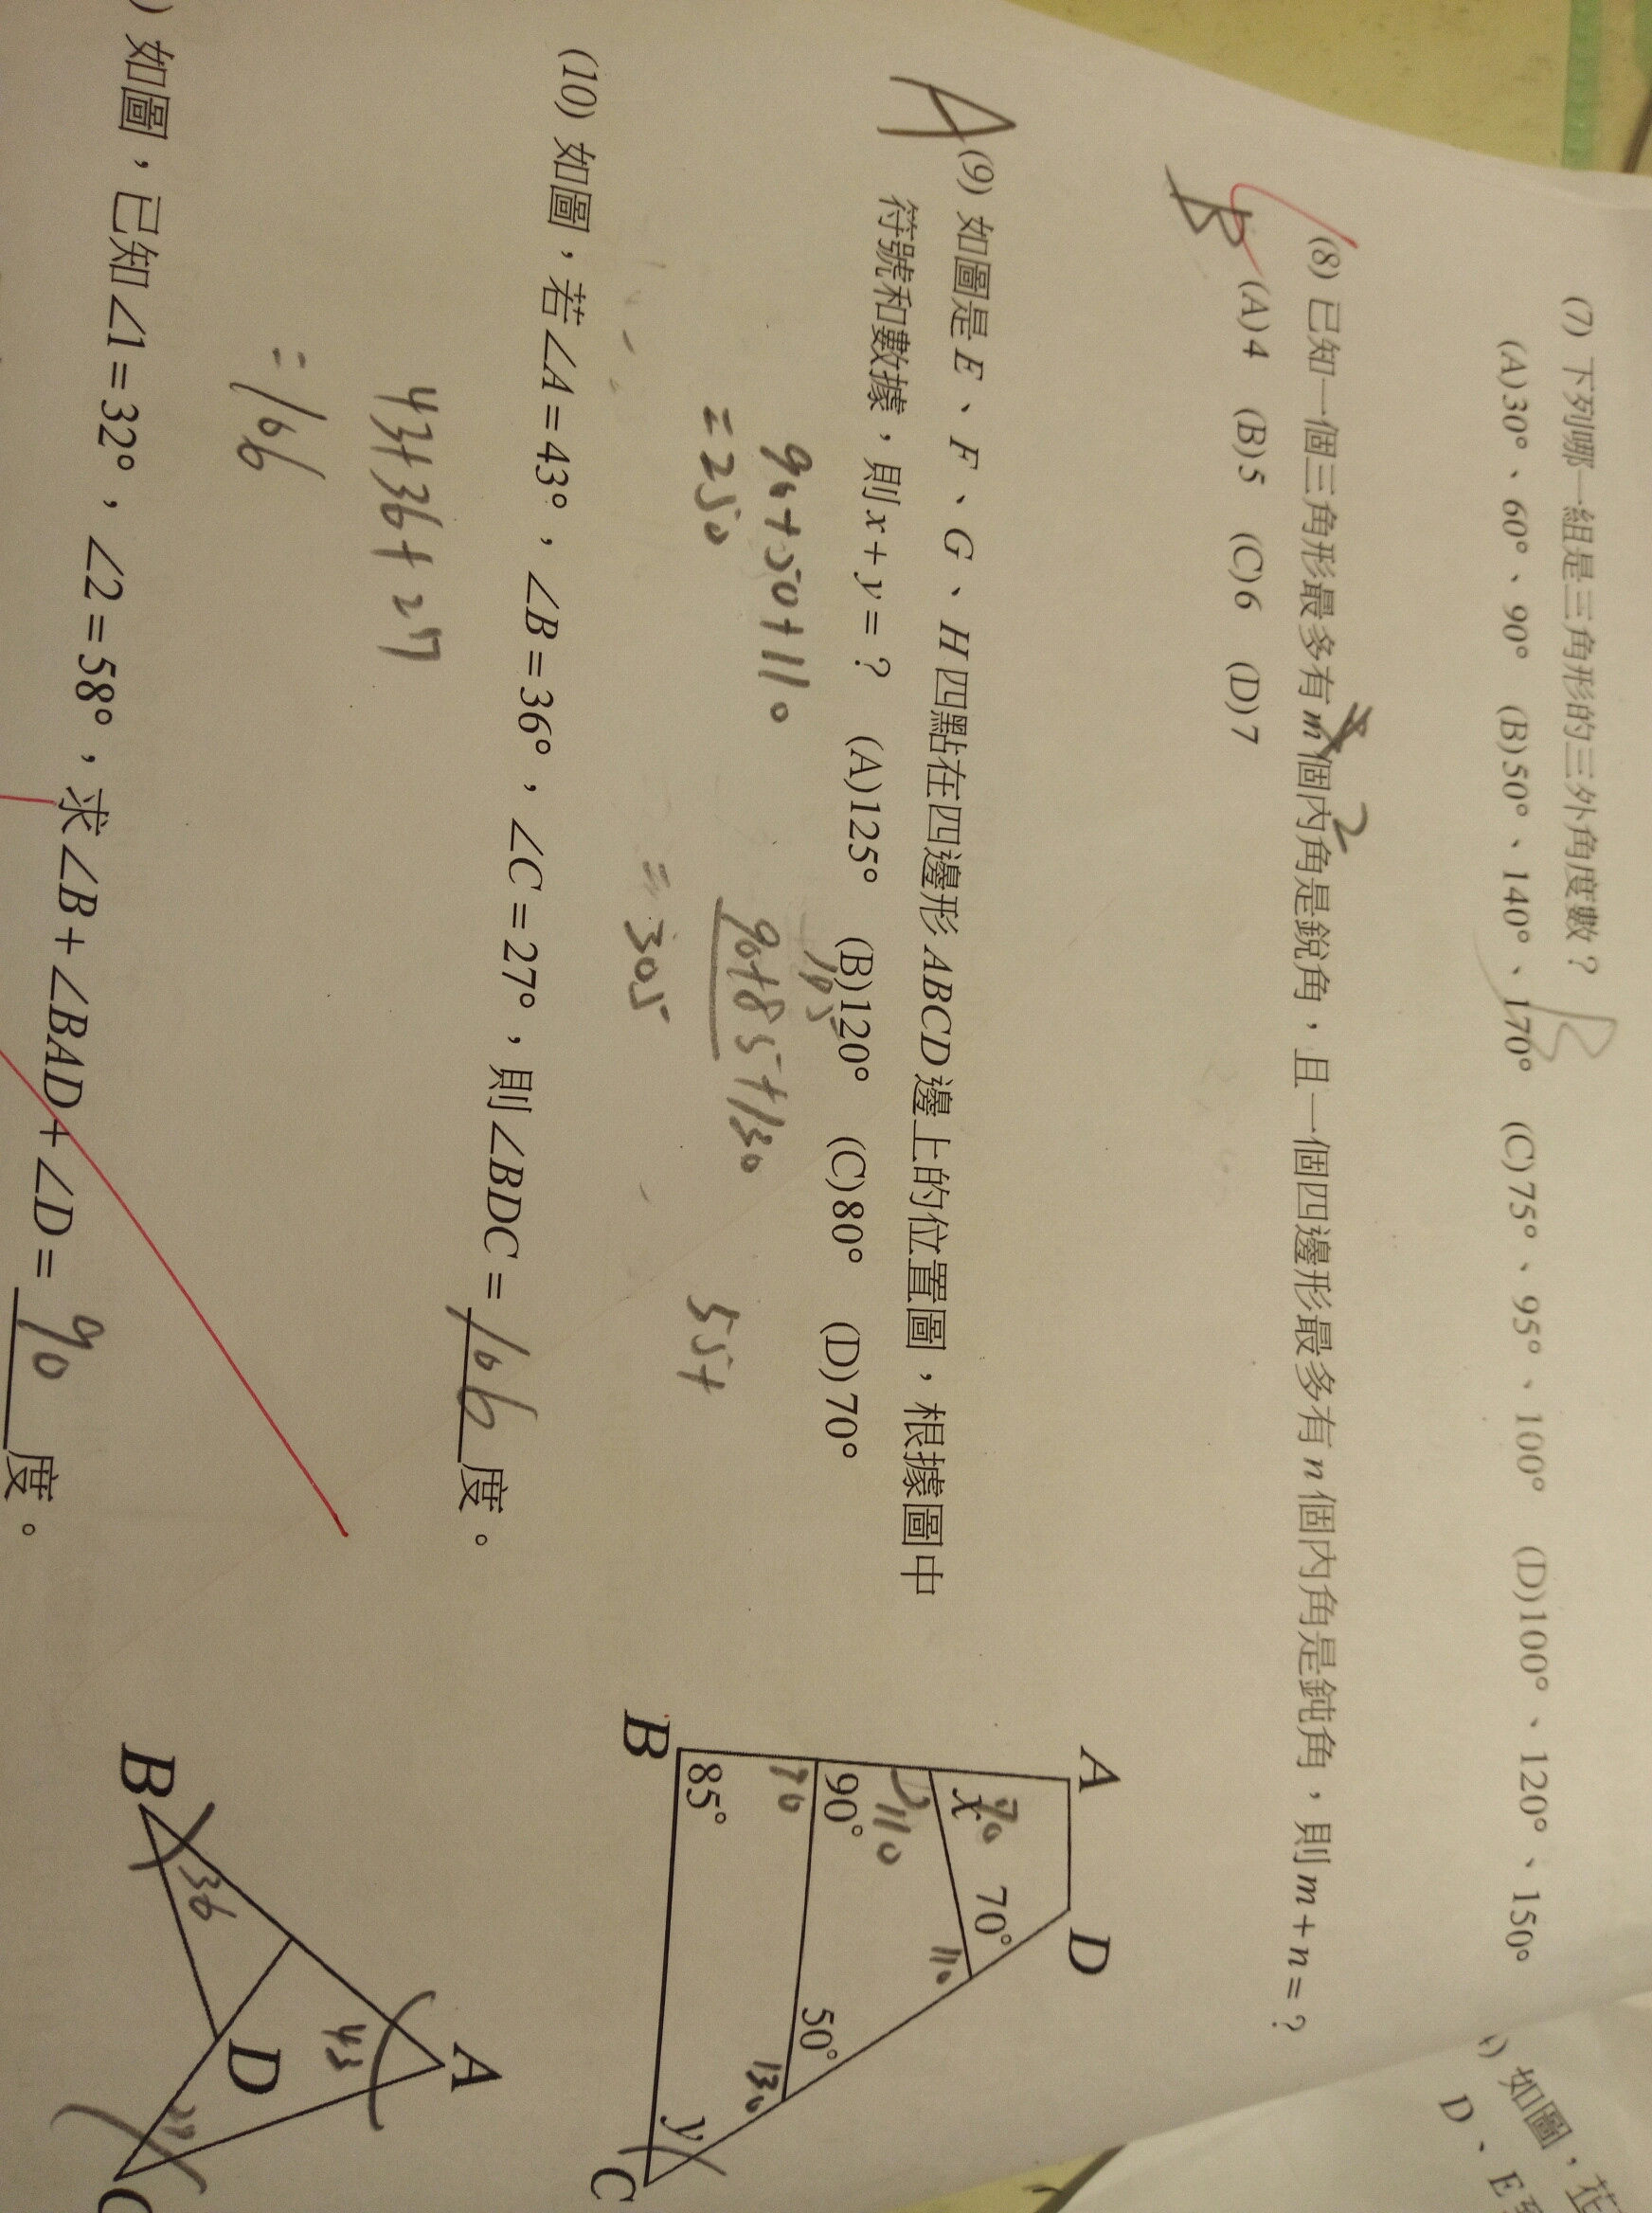 (7) 下列哪一組是三角形的三外角度數？
(A)30°、60°、90° (B)50°、140°、170° (C)75°、95°、100° (D)100°、120°、150°
B
(8) 已知一個三角形最多有m個內角是銳角，且一個四邊形最多有n個內角是鈍角，則m+n=？
2
B
(A)4 (B)5 (C)6 (D)7
A
(9) 如圖是E、F、G、H四點在四邊形ABCD邊上的位置圖，根據圖中
符號和數據，則x+y=？ (A)125° (B)120° (C)80° (D)70°
90+50+110
=250
105
90+85+130
=305
55+
A
D
x
70
70°
110
110
90°
50°
70
130
85°
y
B
C
(10) 如圖，若∠A=43°，∠B=36°，∠C=27°，則∠BDC=106度。
43+36+27
=106
A
43
D
B
36
27
C
) 如圖，已知∠1=32°，∠2=58°，求∠B+∠BAD+∠D=90度。
) 如圖，在
D、E